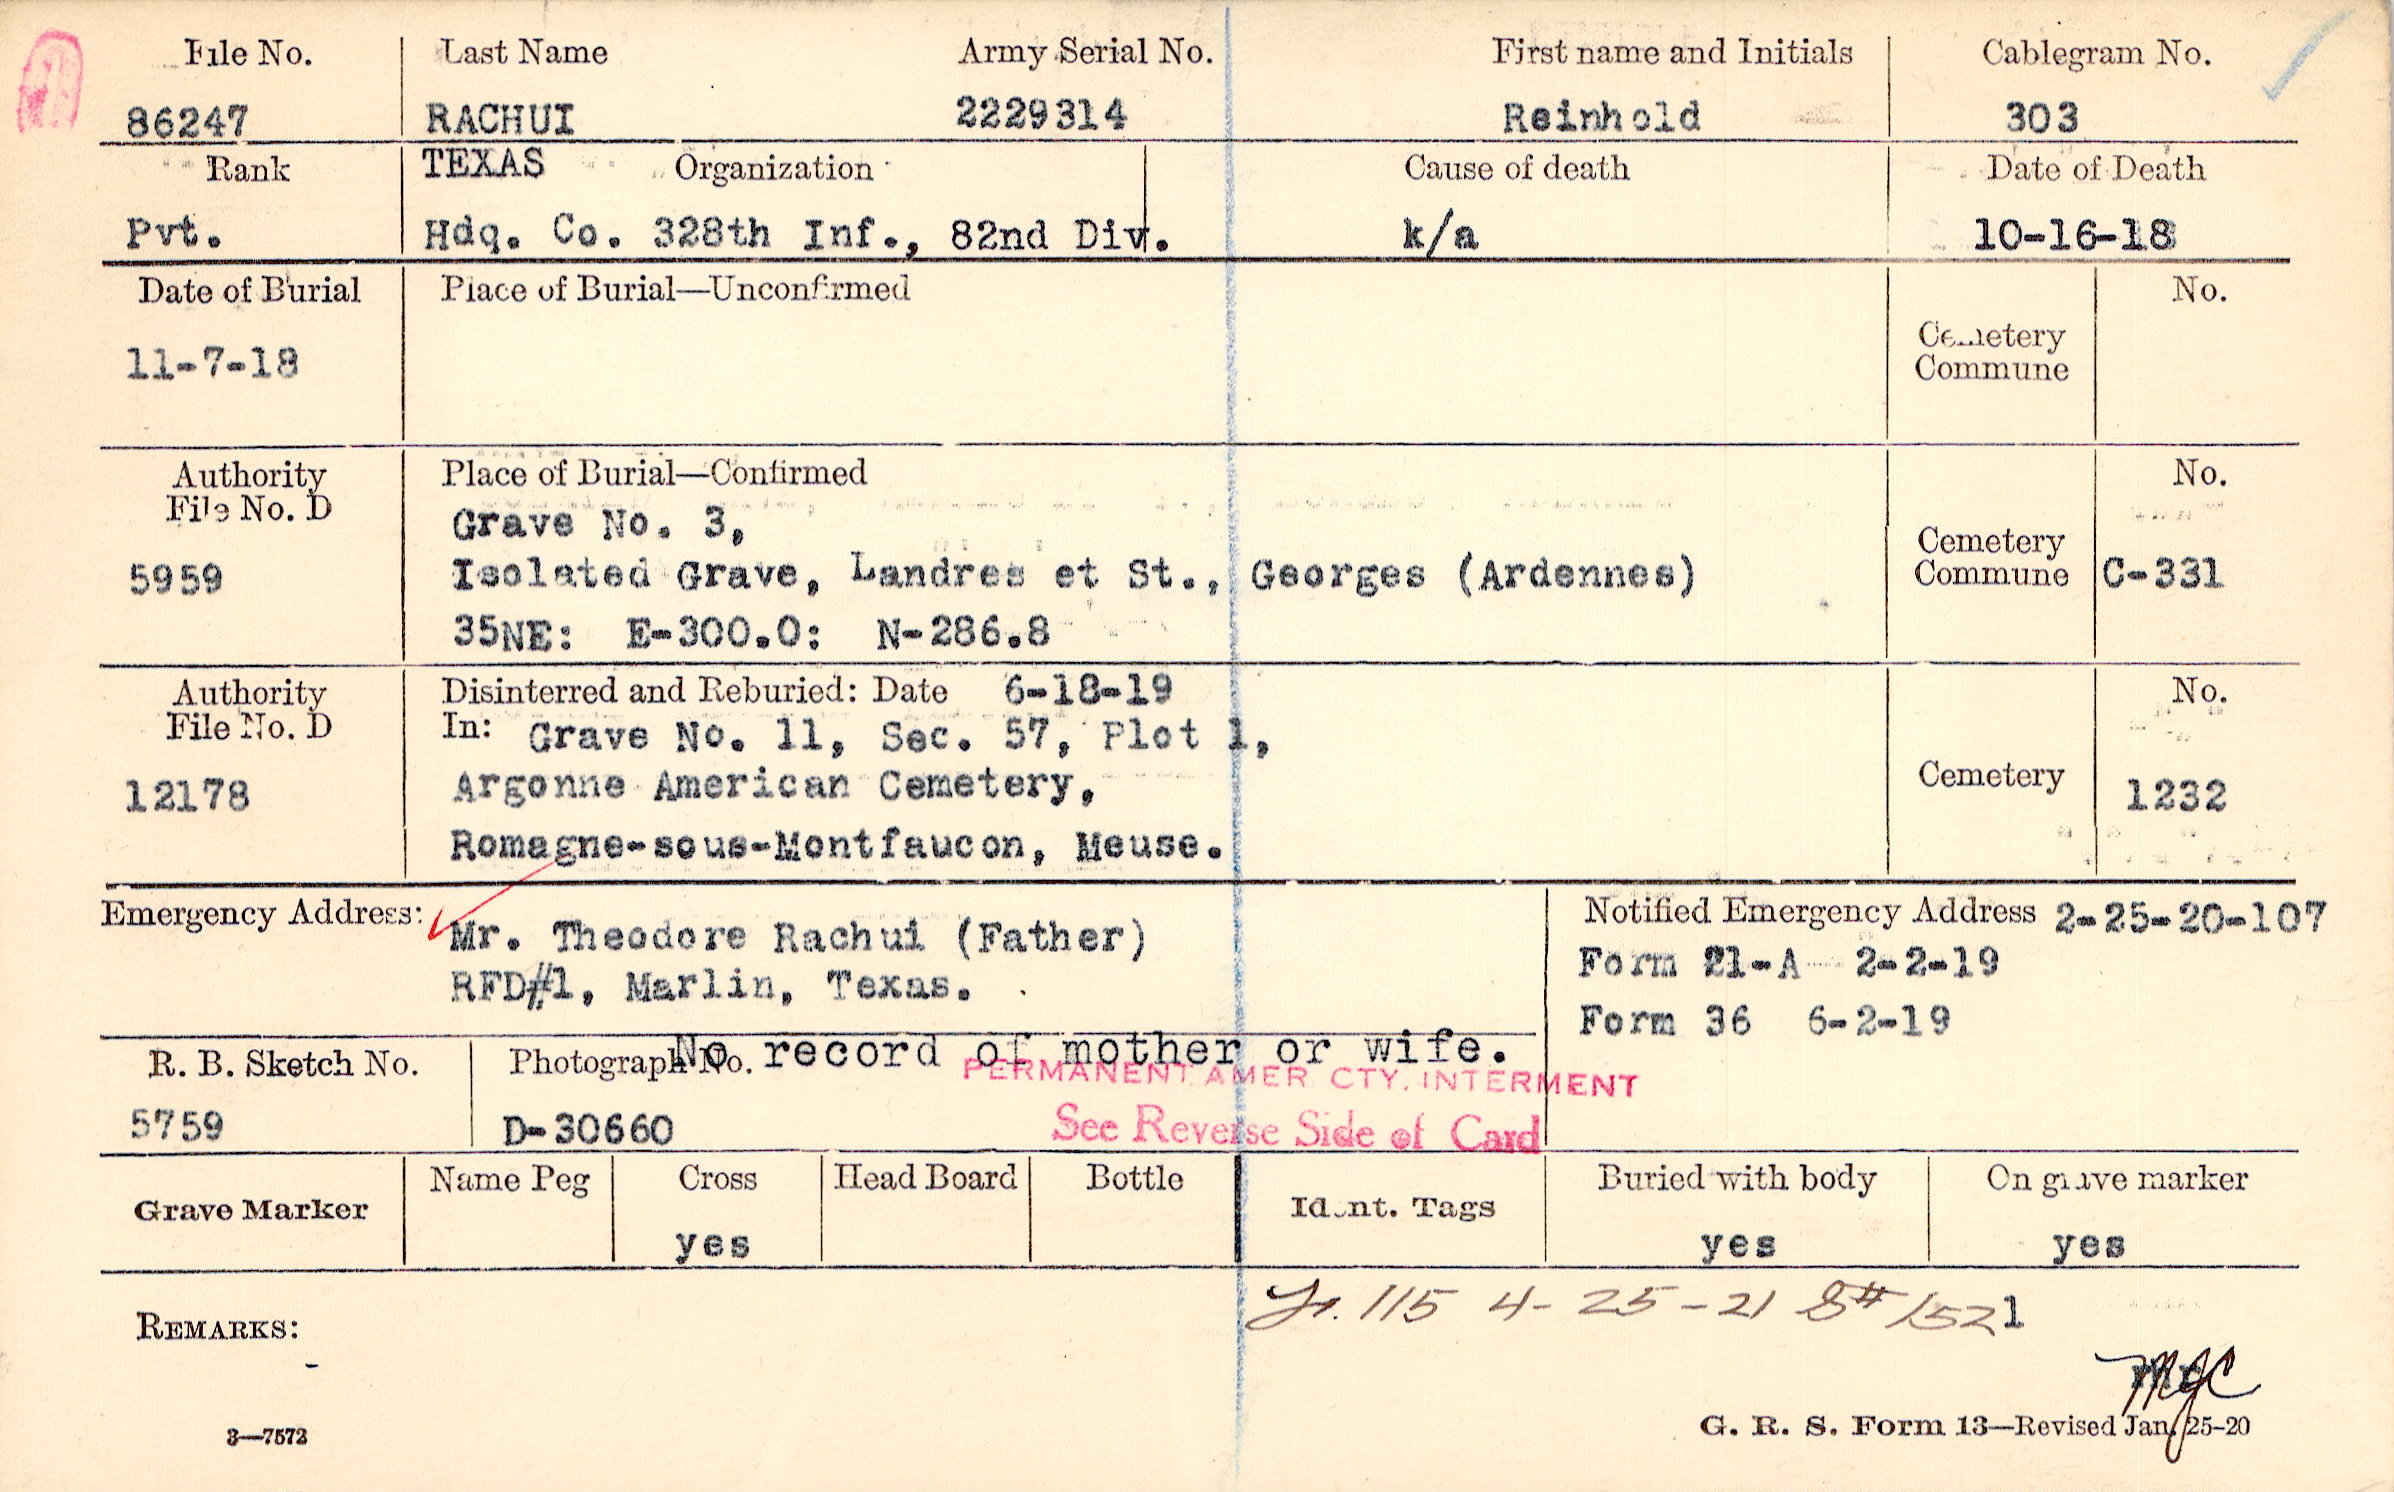 File No. Last Name Army Serial No. First name and Initials Cablegram No.
86247 RACHUI 2229314 Reinhold 303
Rank TEXAS Organization Cause of death Date of Death
Pvt. Hdq. Co. 328th Inf., 82nd Div. k/a 10-16-18
Date of Burial Place of Burial—Unconfirmed No.
11-7-18 Cemetery
Commune
Authority Place of Burial—Confirmed No.
File No. D Grave No. 3,
5959 Isolated Grave, Landres et St., Georges (Ardennes) Cemetery
Commune C-331
35NE: E-300.0: N-286.8
Authority Disinterred and Reburied: Date 6-18-19 No.
File No. D In: Grave No. 11, Sec. 57, Plot 1,
12178 Argonne American Cemetery, Cemetery 1232
Romagne-sous-Montfaucon, Meuse.
Emergency Address: Mr. Theodore Rachui (Father) Notified Emergency Address 2-25-20-107
RFD#1, Marlin, Texas. Form 21-A 2-2-19
Form 36 6-2-19
No record of mother or wife.
R. B. Sketch No. Photograph No. PERMANENT AMER CTY. INTERMENT
5759 D-30660 See Reverse Side of Card
Grave Marker Name Peg Cross Head Board Bottle Ident. Tags Buried with body On grave marker
yes yes yes
115 4-25-21 S# 1521
REMARKS:
-
MJC
3—7572 G. R. S. Form 13—Revised Jan. 25-20